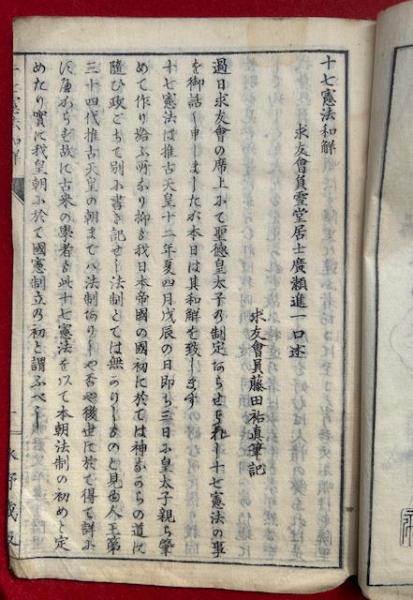 十七憲法和解
求友會員靈堂居士廣瀬進一口述
求友會員藤田祐真筆記
過日求友會の席上にて聖德皇太子の制定あらせられし十七憲法の事
を御話し申しましたが本日は其和解を致します
十七憲法は推古天皇十二年夏四月戊辰の日即ち三日に皇太子親ら肇
めて作り給ふ所なり抑も我日本帝國の國初に於ては神ながらの道に
隨ひ政ごちて別に書き記せし法制とては無かりしものと見ゆ人王第
三十四代推古天皇の朝まで八法制ありしや否や後世に於て得て詳に
すべからず故に古来の學者も此十七憲法を以て本朝法制の初めと定
めたり實に我皇朝に於て國憲制立の初と謂ふべし
十七憲法和解
一
水野藏版